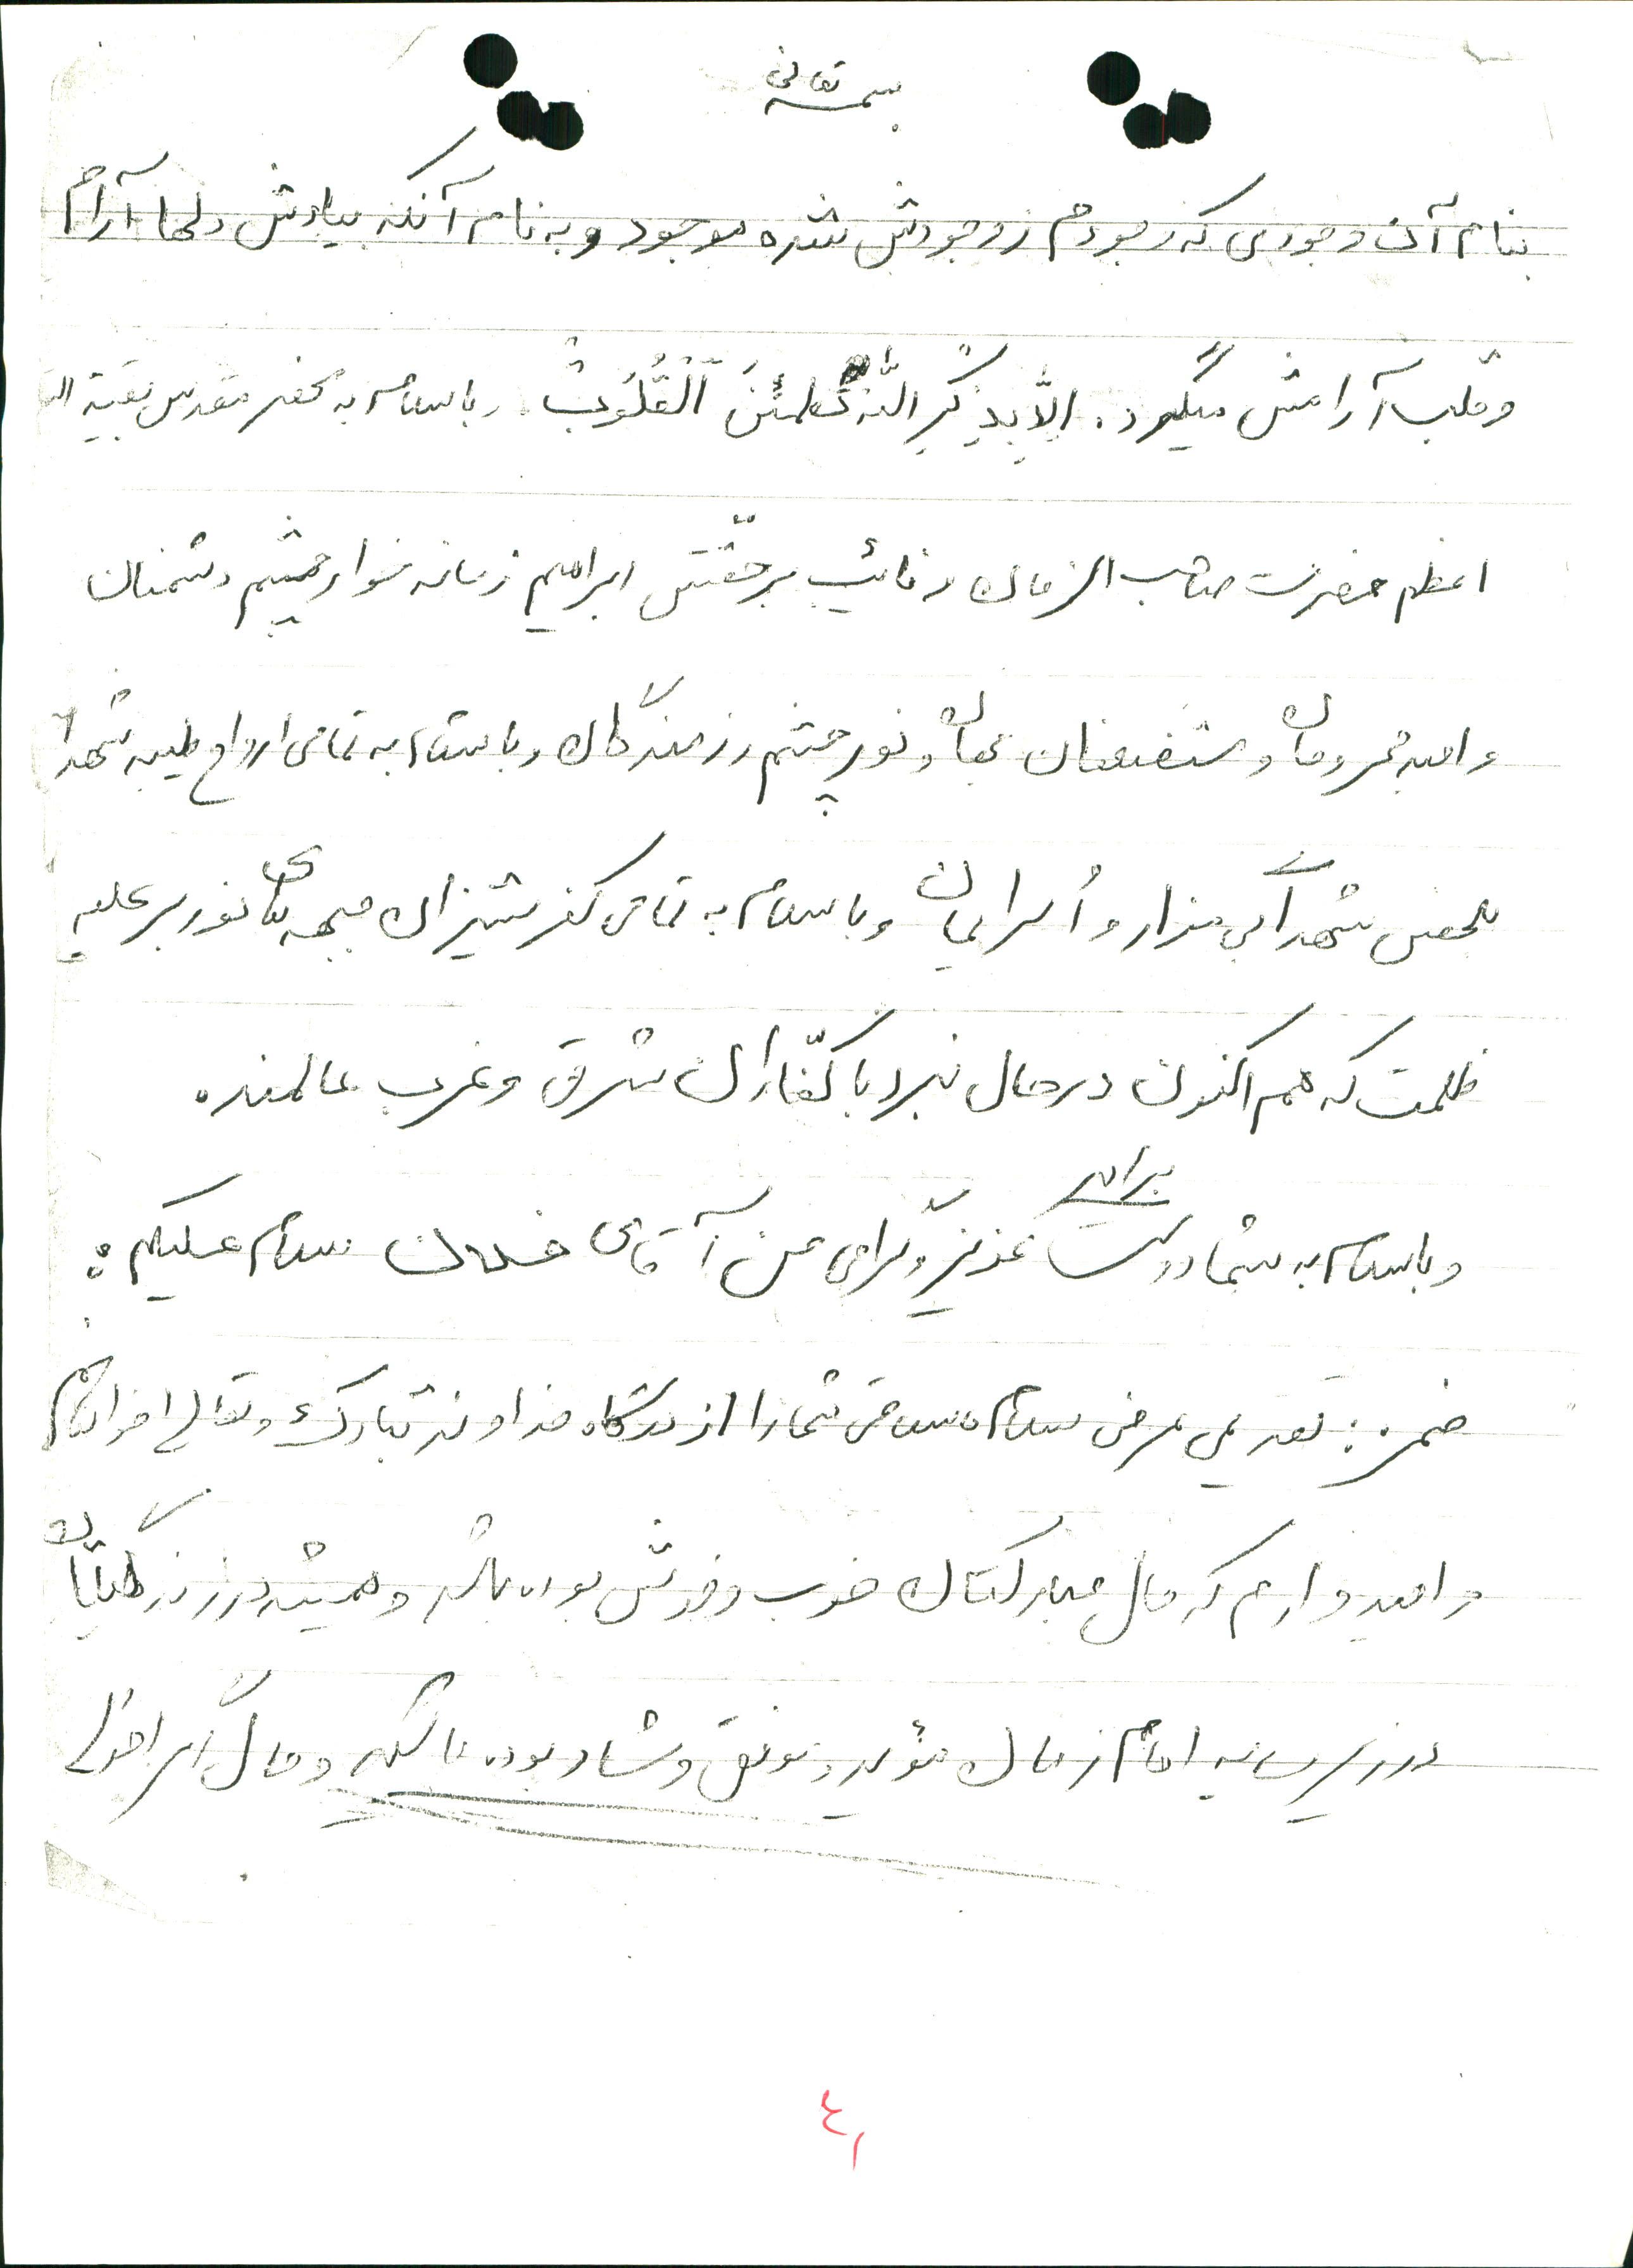 بسمه تعالی
بنام آن وجودی که وجودم ز وجودش شده موجود و به نام آنکه بیادش دلها آرام
و قلب آرامش میگیرد. اِلّا بِذِکرِ اللهِ تَطمَئِنَ اَلْقُلوُبْ. و باسلام به محضر مقدس بقیة الله
اعظم حضرت صاحب الزمان و نائب برحقّش ابراهیم زمانه خوار چشم دشمنان
و امید محرومان و مستضعفان جهان و نور چشم رزمندگان و باسلام به تمامی ارواح طیبه شهدا
بلخص شهدآی گمنام و اُسرایمان و باسلام به تمامی کفر ستیزان جبهه های نور بر علیه
ظلمت که هم اکنون در حال نبرد با کفّاران شرق و غرب عالمند.
برادر
و باسلام به شما دوست عزیز و گرامی من آقای سلام علیکم:
ضمن: تقدیم عرض سلام سلامتی شما را از درگاه خداوند تبارک و تعالی خواهانم
و امیدوارم که حال مبارکتان خوب و خوش بوده باشد و همیشه در زندگیتان
در زیر سایه امام زمان مؤید و موفق و شاد بوده باشید و حال اگر احوال
٤١